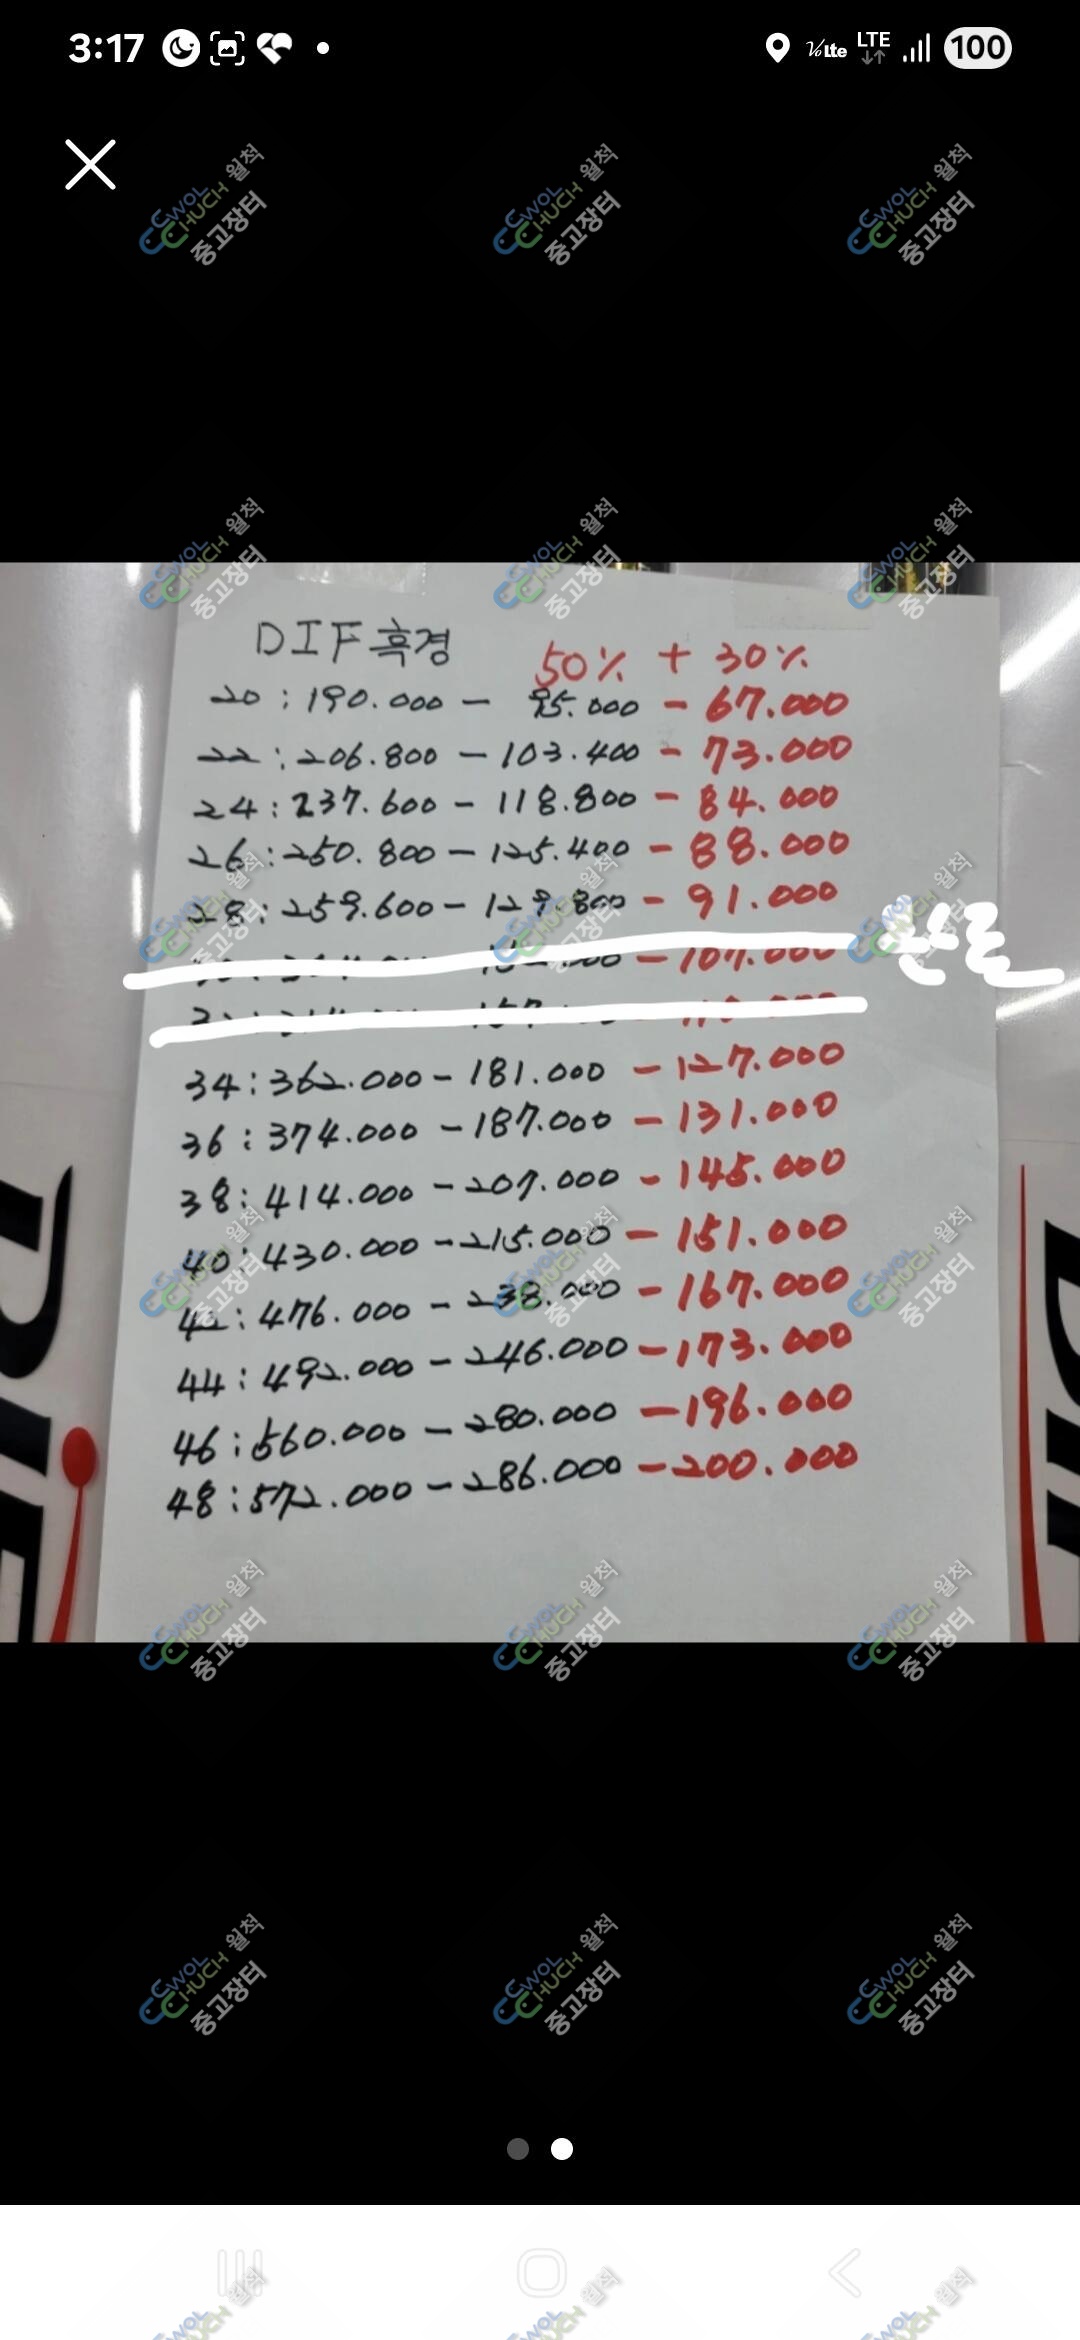 3:17 VoLTE LTE 100
DIF흑경 50% + 30%
20 : 190.000 - 95.000 - 67.000
22 : 206.800 - 103.400 - 73.000
24 : 237.600 - 118.800 - 84.000
26 : 250.800 - 125.400 - 88.000
28 : 259.600 - 129.800 - 91.000
완료
34 : 362.000 - 181.000 - 127.000
36 : 374.000 - 187.000 - 131.000
38 : 414.000 - 207.000 - 145.000
40 : 430.000 - 215.000 - 151.000
42 : 476.000 - 238.000 - 167.000
44 : 492.000 - 246.000 - 173.000
46 : 560.000 - 280.000 - 196.000
48 : 572.000 - 286.000 - 200.000
DIF
DIF
CWOL
CHUCH 월척
중고장터